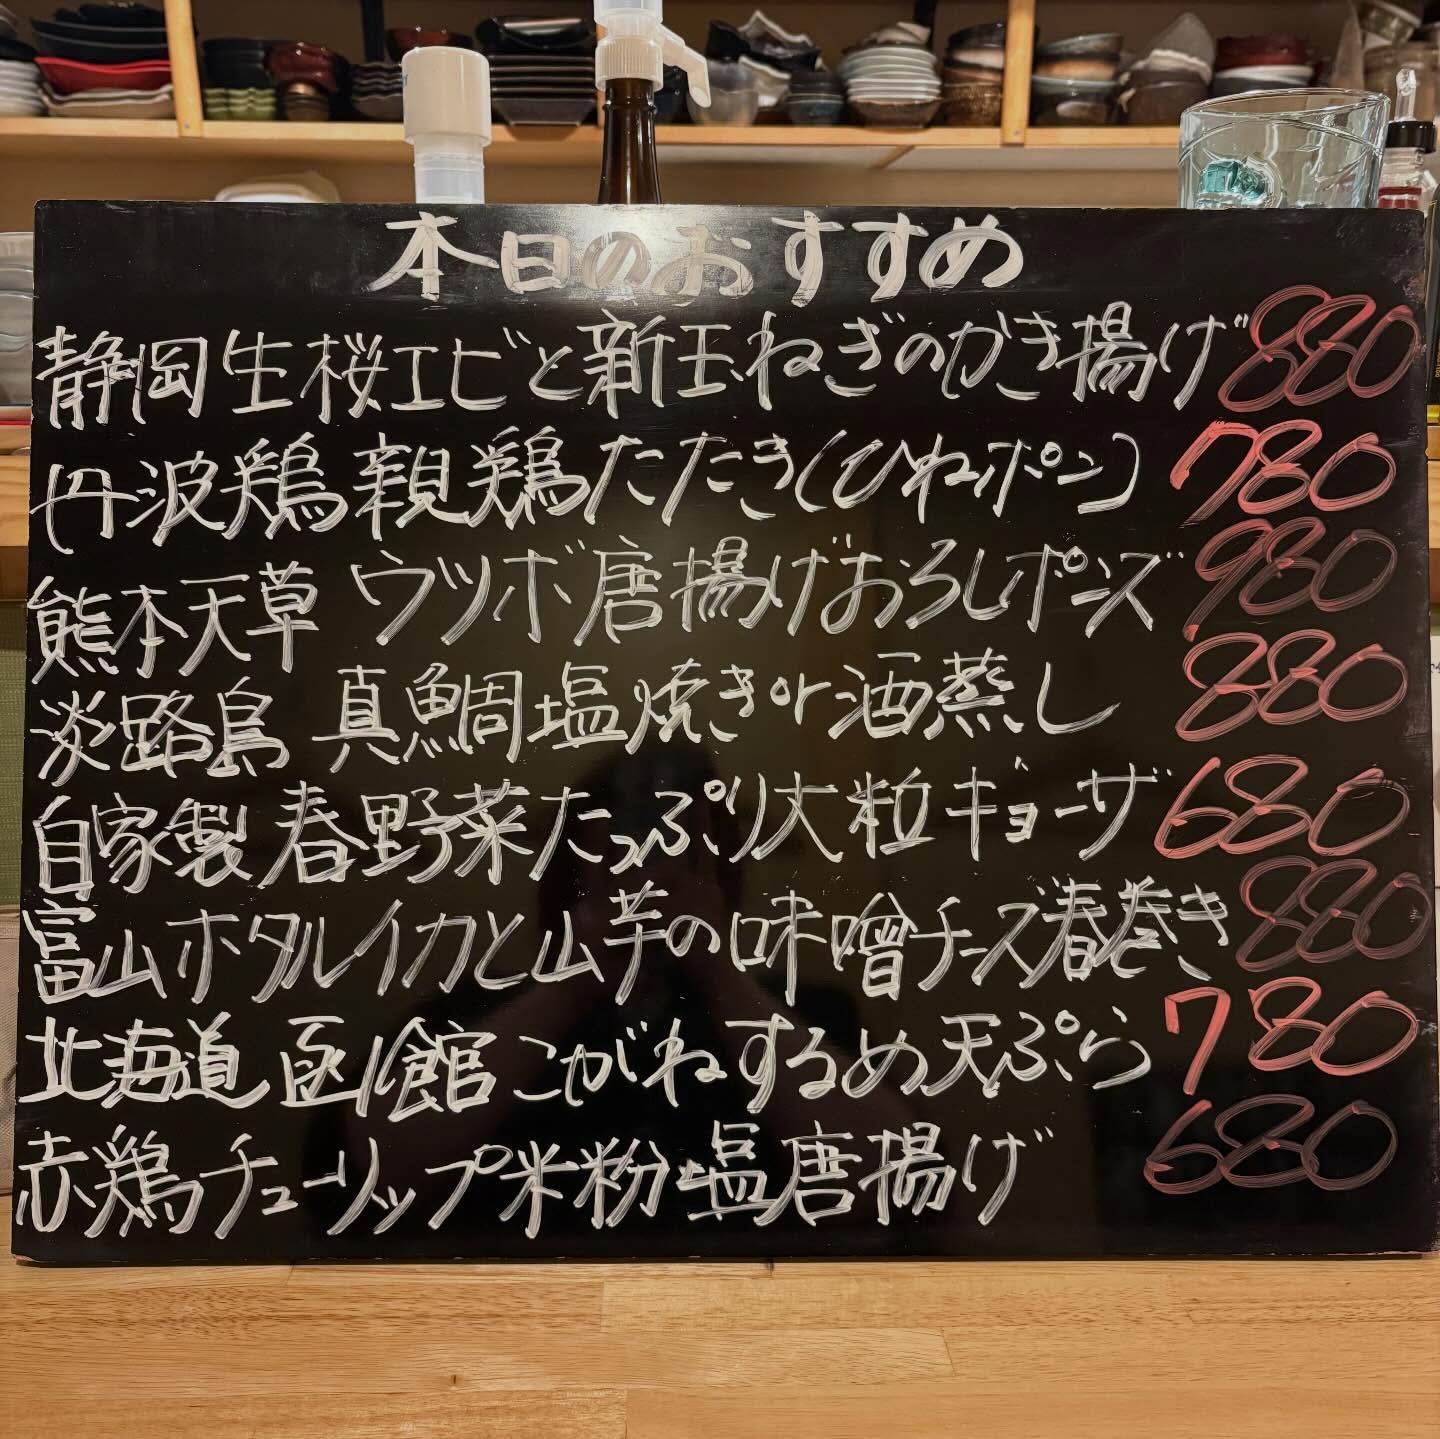 本日のおすすめ
静岡生桜エビと新玉ねぎのかき揚げ 880
丹波鶏親鶏たたき(ひねポン) 780
熊本天草 ウツボ唐揚げおろしポンズ 980
淡路島 真鯛塩焼きor酒蒸し 880
自家製春野菜たっぷり大粒ギョーザ 680
富山ホタルイカと山芋の味噌チーズ春巻き 880
北海道 函館 こがねするめ天ぷら 780
赤鶏チューリップ米粉塩唐揚げ 680